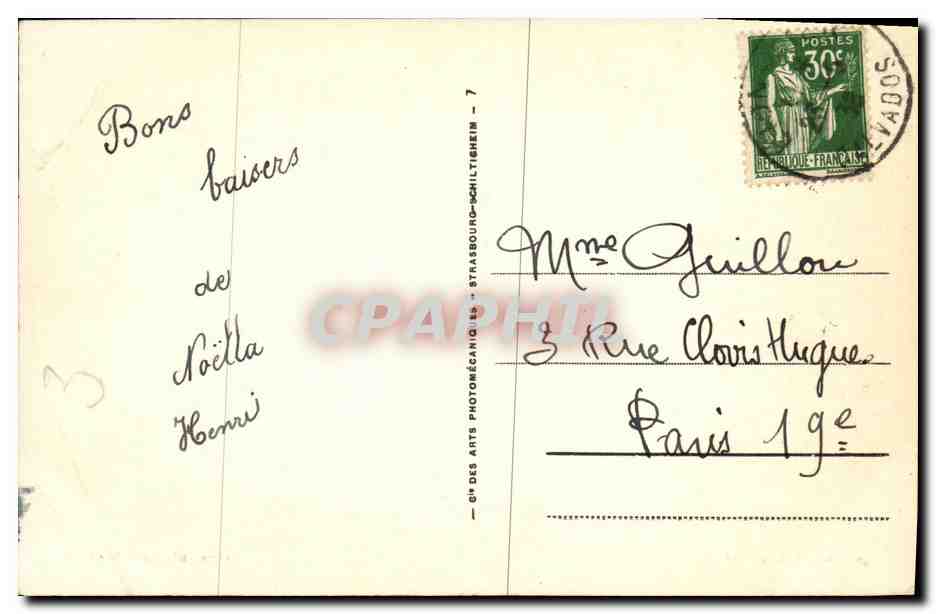 Bons
baisers
de
Noëlla
Henri
3
— Cie DES ARTS PHOTOMÉCANIQUES - STRASBOURG-SCHILTIGHEIM - 7
POSTES
30c
REPUBLIQUE-FRANCAISE
CALVADOS
Mme Guillou
3 Rue Clovis Hugues
Paris 19e
CPAPHIL